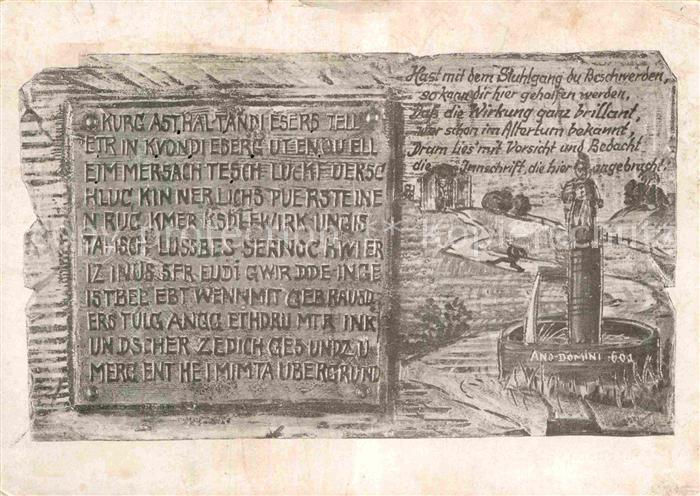 KURG AST,HAL TANDI ESERS TELL
ETR IN KVONDI EBERG UTEN,QUELL
EJMMERSACH TESCH LUCKF UERSC
HLUC KIN NERLICHS PUERSTEINE
N RUC KMER KSDLEWIRK UNDIS
TAHSCH LUSSBES SERNOC HWIER
IZ INUS SFR EUDI GWIR DDE INGE
ISTBEL EBT WENNMIT GEB RAUSD
ERS TULG ANGG ETHDRU MTR INK
UN DSCHER ZEDICH GES UNDZ U
MERG ENT HEIM IMTA UBERGRUND
Hast mit dem Stuhlgang du Beschwerden,
so kann dir hier geholfen werden,
Daß die Wirkung ganz brillant,
war schon im Altertum bekannt,
Drum lies' mit Vorsicht und Bedacht
die Innschrift, die hier angebracht!
ANO-DOMINI-601